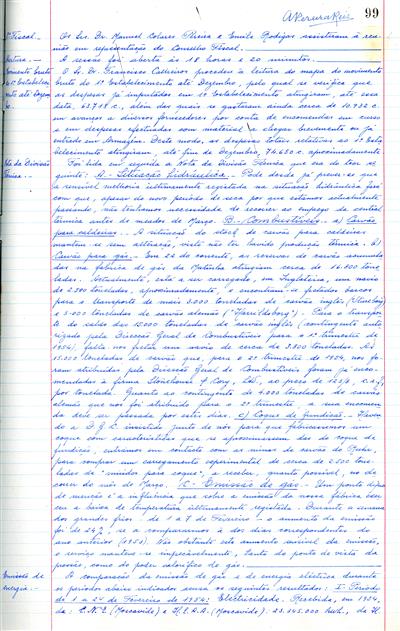 99
C. Fiscal.
Os Srs. Dr. Manuel Colares Vieira e Emile Rodigas assistiram à reu-
nião em representação do Conselho Fiscal.
A sessão foi aberta às 18 horas e 20 minutos.
O Sr. Dr. Francisco Calheiros procedeu à leitura do mapa do movimento
do 1º Estabelecimento até Dezembro, pelo qual se verifica que
as despesas já imputadas em 1º Estabelecimento atingiram, até essa
data, 63.918 c., além das quais se gastaram ainda cerca de 10.732 c.
em avanços a diversos fornecedores por conta de encomendas em curso
e em despesas efectuadas com material a chegar brevemente ou já
entrado em Armazém. Deste modo, as despesas totais relativas ao 1º Esta-
belecimento atingiram, até fim de Dezembro, 74.650 c. aproximadamente
Foi lida em seguida a Nota da Divisão Técnica que era do teor se-
guinte: A- Situação hidráulica - Pode desde já prever-se que
a sensível melhoria ultimamente registada na situação hidráulica fará
com que, apesar do novo período de seca por que estamos actualmente
passando, não tenhamos necessidade de recorrer ao emprego da central
térmica antes de meados de Março. B- Combustíveis - a) Carvão
para caldeiras - A situação do stock de carvão para caldeiras
mantem-se sem alteração, visto não ter havido produção térmica. b)
Carvão para gás. - Em 22 do corrente, as reservas de carvão acumula-
das na fábrica de gás da Matinha atingiam cerca de 16.600 tone-
ladas. Actualmente, está a ser carregado, em Inglaterra, um navio
de 2.500 toneladas, aproximadamente, e encontram-se fretados barcos
para o transporte de mais 3.000 toneladas de carvão inglês
e 3.000 toneladas de carvão alemão. Para o transpor-
te do saldo das 15.000 toneladas de carvão inglês (contingente auto-
rizado pela Direcção Geral de Combustíveis para o 1º trimestre de
1954) falta-nos fretar um navio de cerca de 2.800 toneladas. As
15.000 toneladas de carvão que, para o 2º trimestre de 1954, nos fo-
ram atribuidas pela Direcção Geral de Combustíveis foram já enco-
mendadas à firma Stonehouse & Cory, Ltd, ao preço de
por tonelada. Quanto ao contingente de 9.000 toneladas de carvão
alemão que nos foi atribuido para o 2º trimestre a sua encomen-
da deve ser passada por estes dias. c) Coque de fundição - Haven-
do a D. G. C. insistido junto de nós para que fabricássemos um
coque com características que se aproximassem das do coque de
fundição, entrámos em contacto com as minas de carvão do Ruhr,
para comprar um carregamento experimental de cerca de 2.500 tone-
ladas de "miudos para coque", a receber, quanto possível, no de-
correr do mês de Março. C- Emissão de gás - Um ponto digno
de menção é a influência que sobre a emissão da nossa fábrica exer-
ceu a baixa de temperatura ultimamente registada. Durante a semana
dos grandes frios - de 1 a 7 de Fevereiro - o aumento da emissão
foi de 24%, se a compararmos à dos dias correspondentes do
ano anterior (1953). Não obstante este aumento sensível da emissão,
o serviço manteve-se impecavelmente, tanto do ponto de vista da
pressão, como do poder calorífico do gás.
Emissão de
energia.
A comparação da emissão de gás e de energia eléctrica durante
os períodos abaixo indicados mostra os seguintes resultados: 1º Período
de 1 a 24 de Fevereiro de 1954: Electricidade. Recebida, em 1954,
da: C.N.E. (Moscavide) e H.E.A.A. (Moscavide).